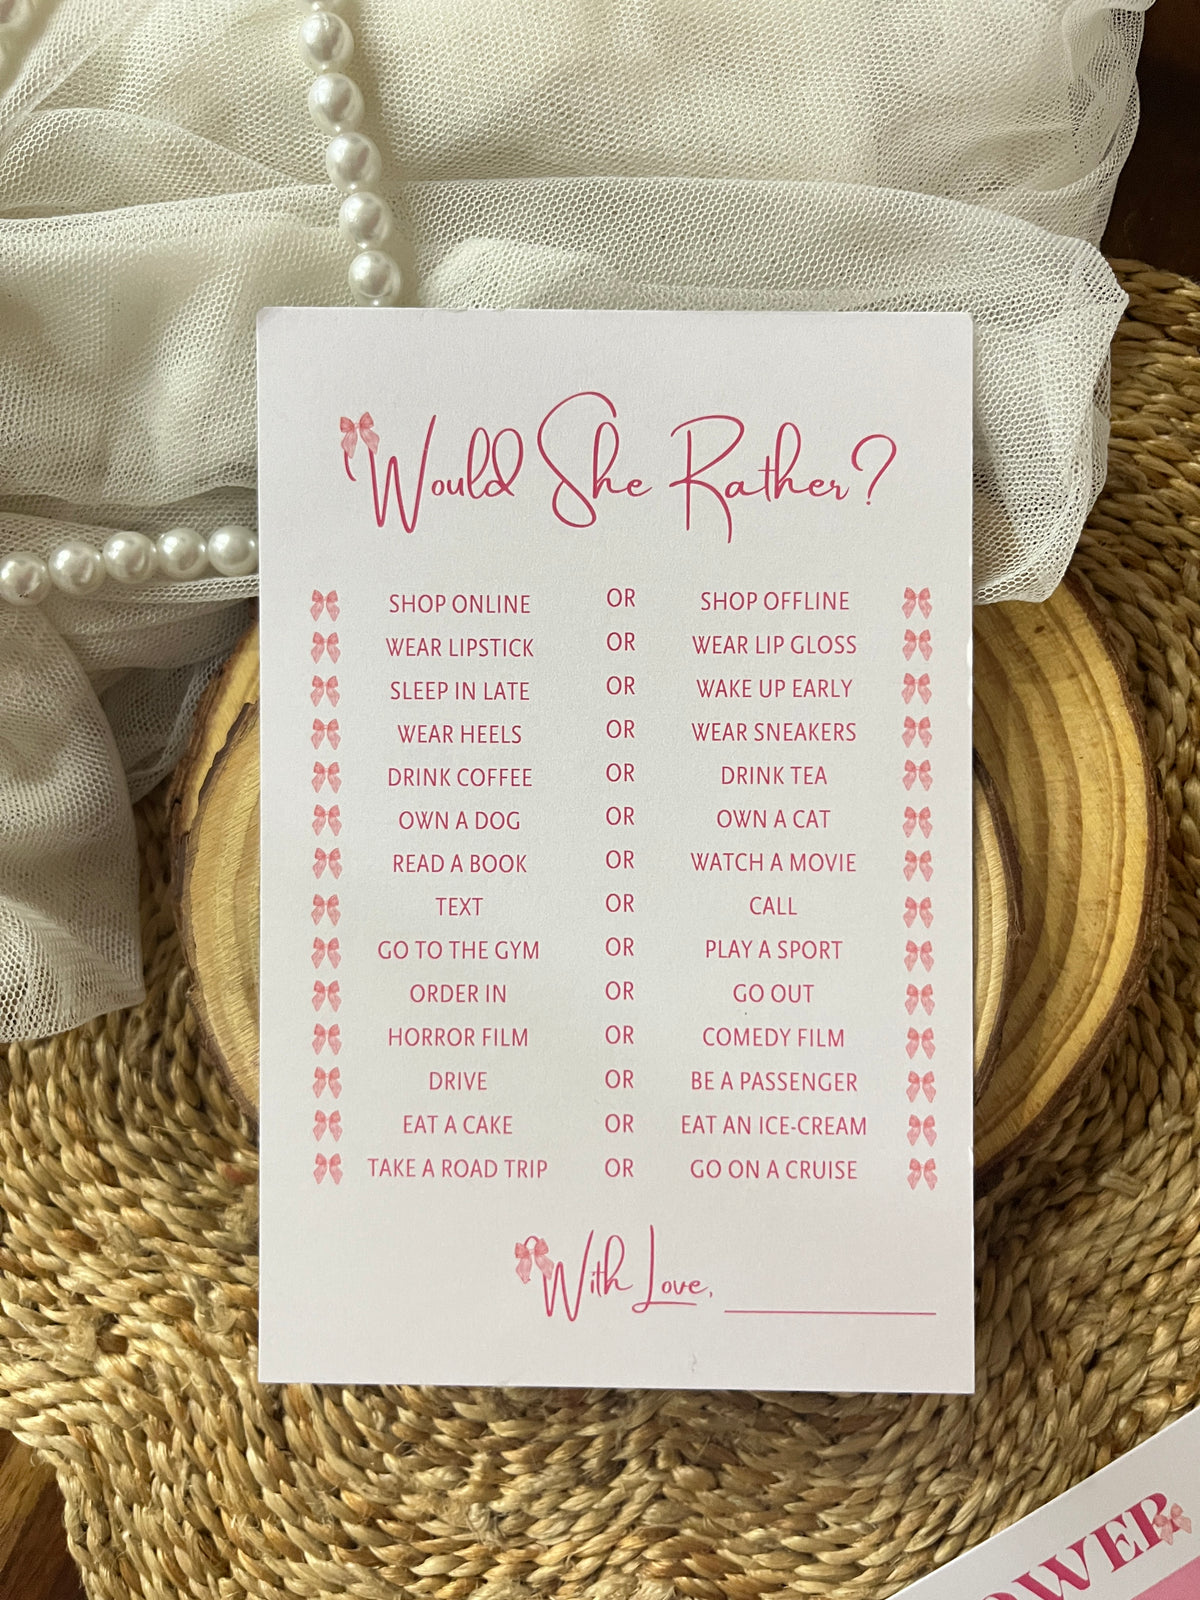 Would She Rather?
SHOP ONLINE OR SHOP OFFLINE
WEAR LIPSTICK OR WEAR LIP GLOSS
SLEEP IN LATE OR WAKE UP EARLY
WEAR HEELS OR WEAR SNEAKERS
DRINK COFFEE OR DRINK TEA
OWN A DOG OR OWN A CAT
READ A BOOK OR WATCH A MOVIE
TEXT OR CALL
GO TO THE GYM OR PLAY A SPORT
ORDER IN OR GO OUT
HORROR FILM OR COMEDY FILM
DRIVE OR BE A PASSENGER
EAT A CAKE OR EAT AN ICE-CREAM
TAKE A ROAD TRIP OR GO ON A CRUISE
With Love,